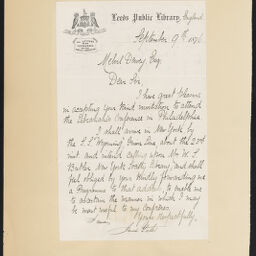 Leeds Public Library, England
September 9th 1876
Melvil Dewey Esq.
Dear Sir
I have great pleasure
in accepting your kind invitation to attend
the Librarians Conference in Philadelphia
I shall arrive in New York by
the S.S. "Wyoming" Guion Line about the 22nd
inst. and intend calling upon Mr W. T.
Peoples New York Society Library, and shall
feel obliged by your kindly forwarding me
a Programme to that address, to enable me
to ascertain the manner in which I may
be most useful to my confreres.
Yours Respectfully,
James Yates